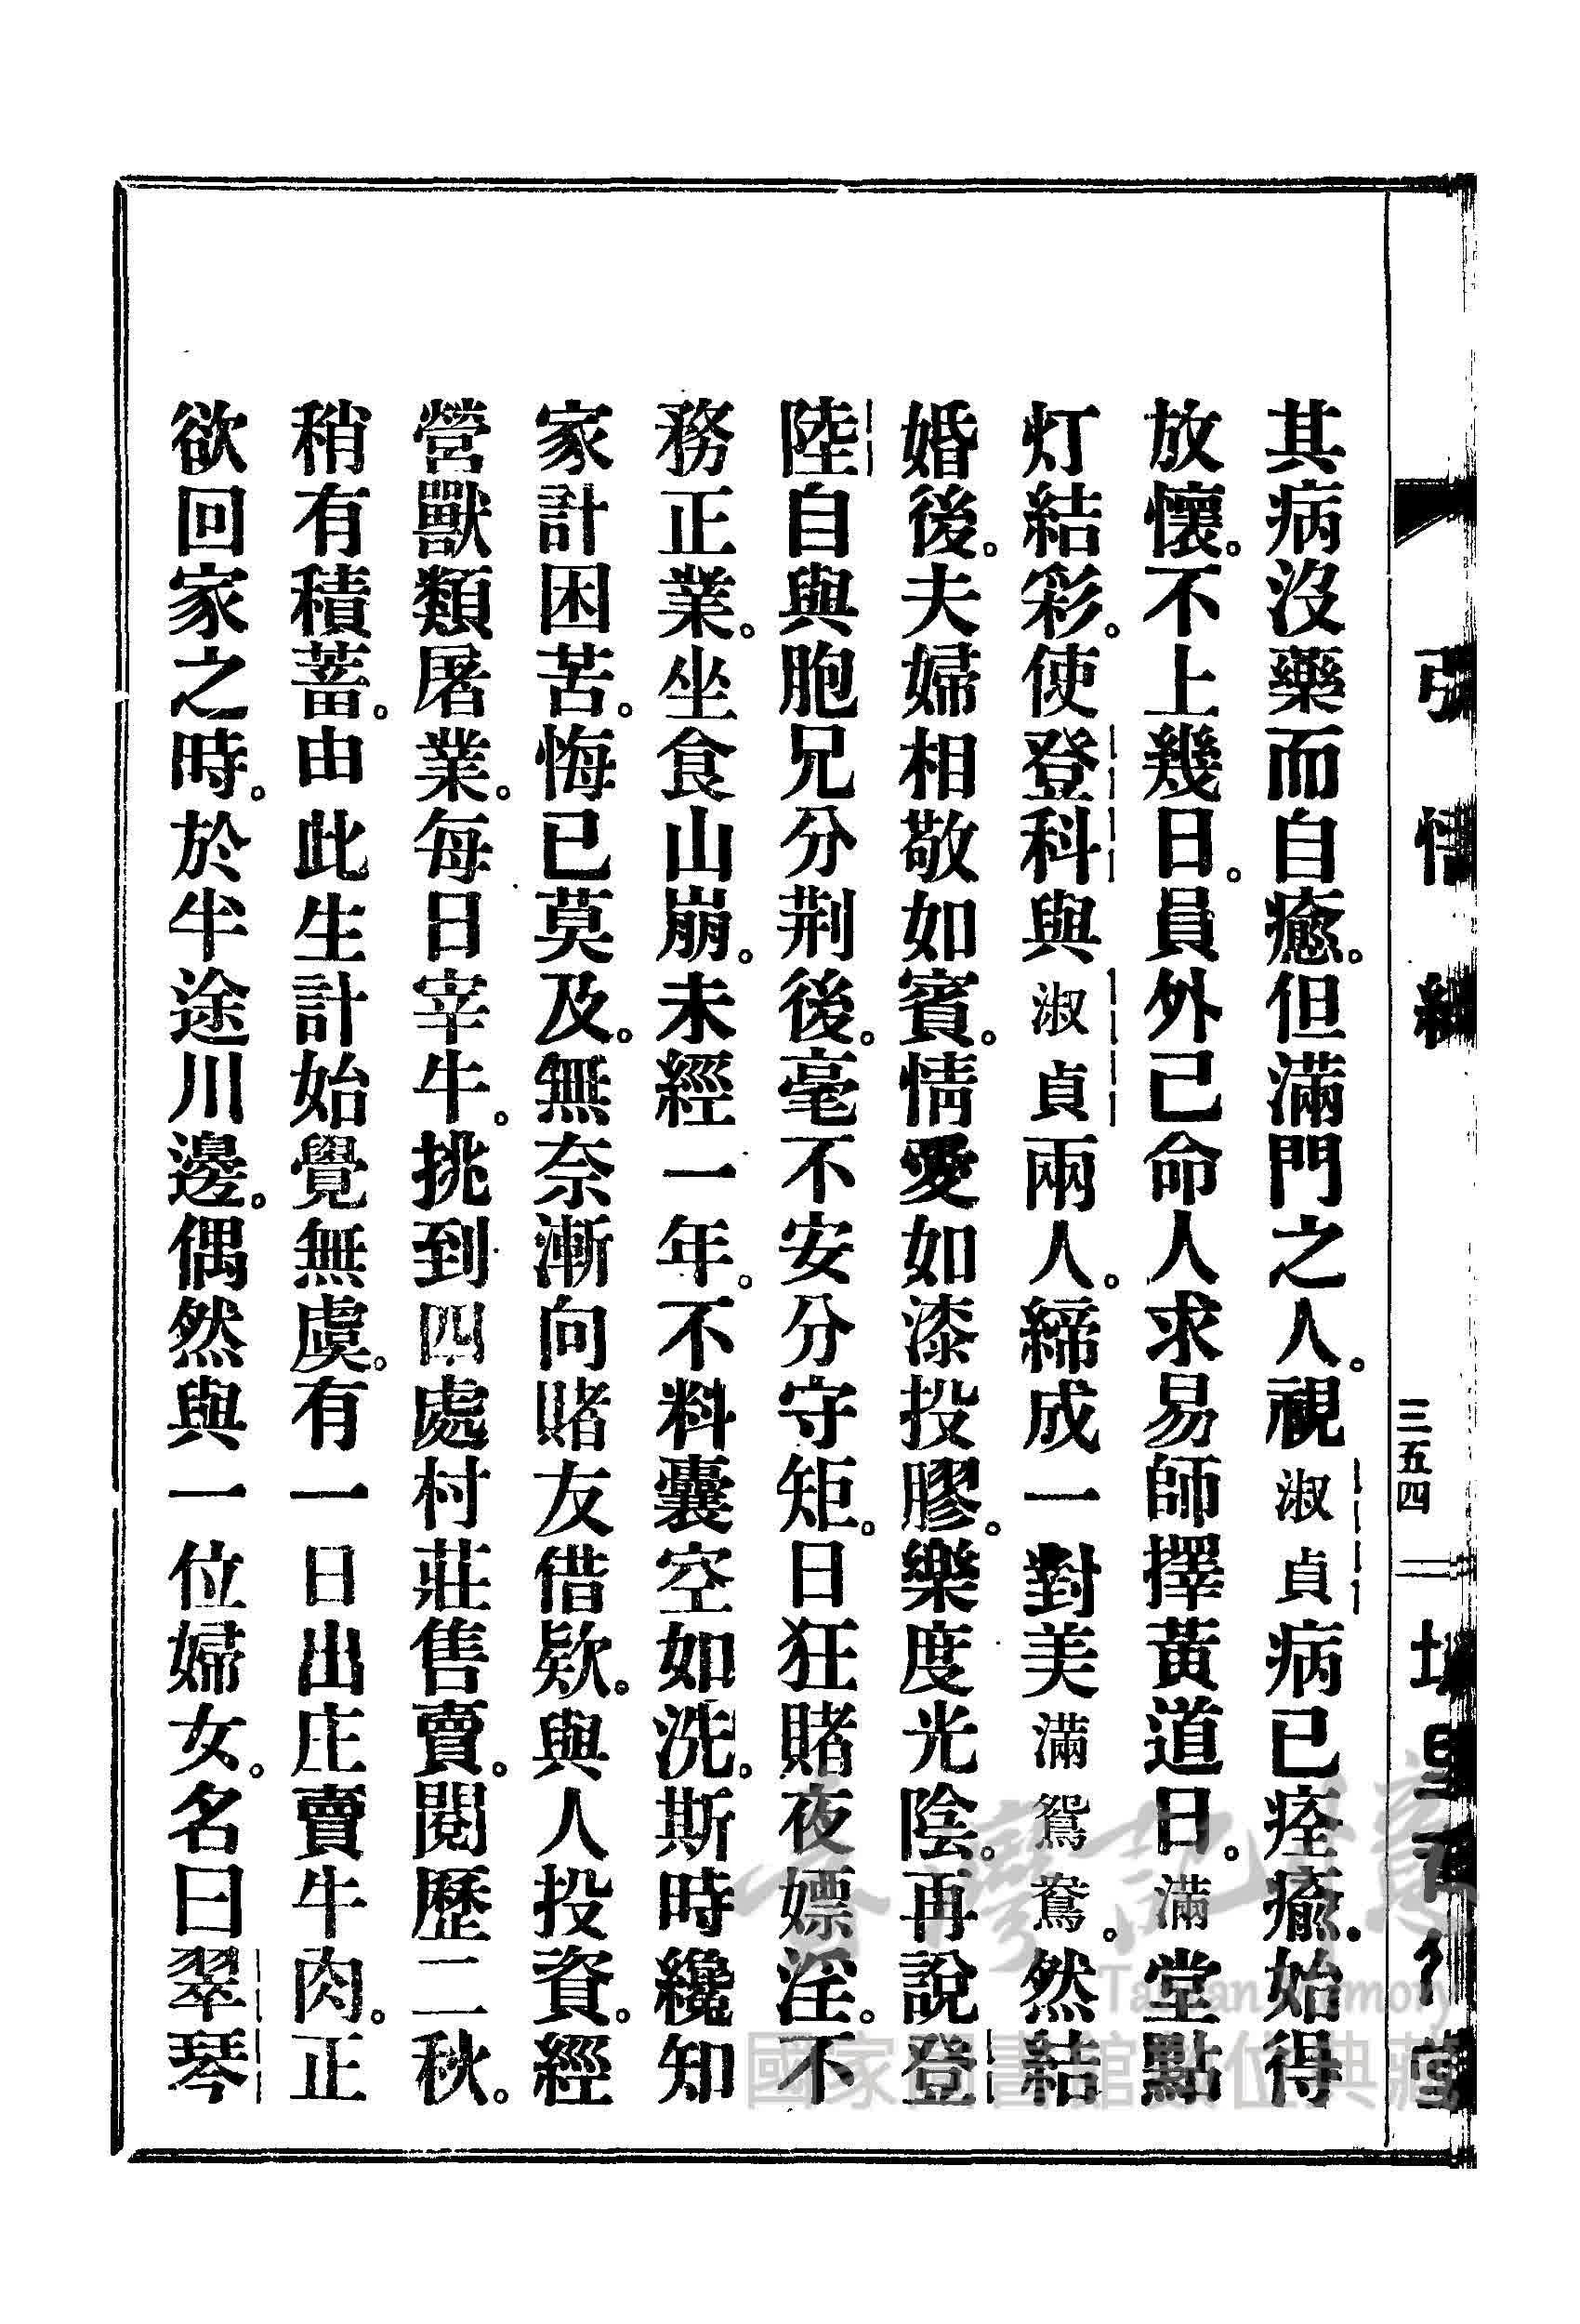 三五四
其病沒藥而自癒。但滿門之人。視淑貞病已痊癒。始得
放懷。不上幾日。員外已命人求易師擇黃道日。滿堂點
灯結彩。使登科與淑貞兩人。締成一對美滿鴛鴦。然結
婚後。夫婦相敬如賓。情愛如漆投膠。樂度光陰。再說登
陸自與胞兄分荆後。毫不安分守矩。日狂賭夜嫖淫。不
務正業。坐食山崩。未經一年。不料囊空如洗。斯時纔知
家計困苦。悔已莫及。無奈漸向賭友借欵。與人投資。經
營獸類屠業。每日宰牛。挑到四處村莊售賣。閱歷二秋。
稍有積蓄。由此生計始覺無虞。有一日出庄賣牛肉。正
欲回家之時。於半途川邊。偶然與一位婦女。名曰翠琴
臺灣記憶
Taiwan Memory
國家圖書館數位典藏